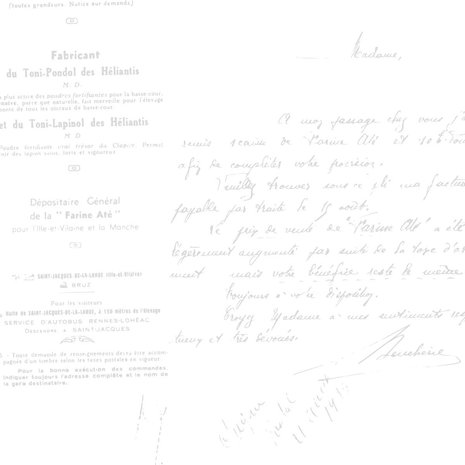 (toutes grandeurs. Notice sur demande)
Fabricant
du Toni-Pondol des Héliantis
M. D.
plus active des poudres fortifiantes pour la basse-cour,
parce que naturelle, fait merveille pour l'élevage
de tous les oiseaux de basse-cour.
et du Toni-Lapinol des Héliantis
M. D.
Poudre fortifiante, vrai trésor du Clapier. Permet
d'avoir des lapins sains, forts et vigoureux
Dépositaire Général
de la "Farine Até"
pour l'Ille-et-Vilaine et la Manche
SAINT-JACQUES-DE-LA-LANDE (Ille-et-Vilaine)
BRUZ
Pour les visiteurs
Halte de SAINT-JACQUES-DE-LA-LANDE, à 100 mètres de l'Élevage
SERVICE D'AUTOBUS RENNES-LOHÉAC
Descendre à SAINT-JACQUES
Toute demande de renseignements devra être accom-
pagnée d'un timbre selon les taxes postales en vigueur
Pour la bonne exécution des commandes,
indiquer toujours l'adresse complète et le nom de
la gare destinataire.
Madame,
A mon passage chez vous j'
remis sacs de "Farine Até" et
afin de compléter votre
Veuillez trouver sous ce pli ma facture
payable par traite le 15 août.
Le prix de vente de "Farine Até" a été
légèrement augmenté par suite de la taxe d'ar
ment mais votre bénéfice reste le même
Toujours à votre disposition,
Croyez Madame à mes sentiments res
tueux et très dévoués.